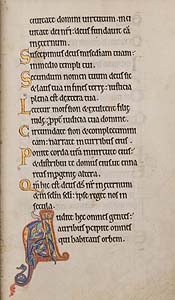 ciuitate domini uirtutum in ci
uitate dei nri: deus fundauit eam
in eternum.
Suscepimus deus misediam tuam in
medio templi tui.
Secundum nomen tuum deus sic
& laus tua in fines terre: iusticia
plena est dextera tua.
Letetur mons syon & exultent filie
iude: ppt iudicia tua domine.
Circumdate syon & complectemini
eam: narrate in turribus eius.
Ponite corda ura in uirtute eius:
& distribuite domos eius ut enar
retis in pgenie altera.
Qm hic est deus ds nr in eternum
& in sclm scli: ipse reget nos in
secula.
Audite hec omnes gentes:
auribus pcipite omnes
qui habitatis orbem.